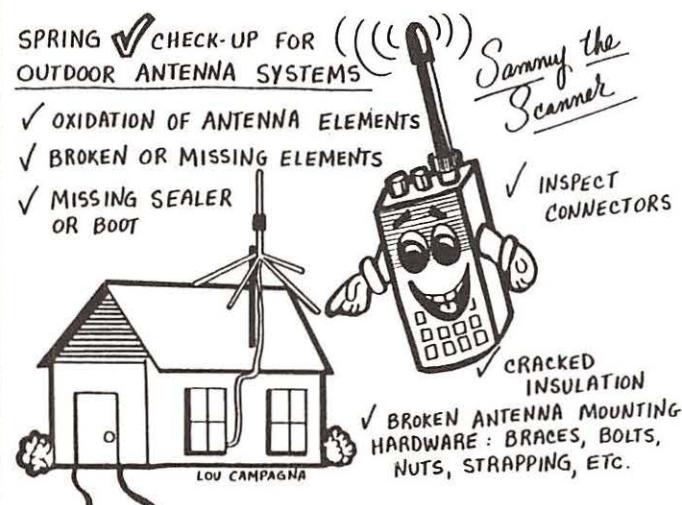 SPRING ✓ CHECK-UP FOR
OUTDOOR ANTENNA SYSTEMS
Sammy the
Scanner
✓ OXIDATION OF ANTENNA ELEMENTS
✓ BROKEN OR MISSING ELEMENTS
✓ MISSING SEALER
OR BOOT
✓ INSPECT
CONNECTORS
✓ CRACKED
INSULATION
✓ BROKEN ANTENNA MOUNTING
HARDWARE: BRACES, BOLTS,
NUTS, STRAPPING, ETC.
LOU CAMPAGNA